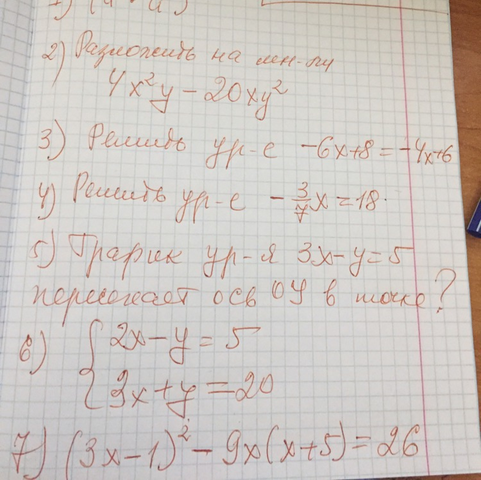 2) Разложить на мн-ли
4x²y – 20xy²
3) Решить ур-е –6x+8=–4x+6
4) Решить ур-е –3/7x=18.
5) График ур-я 3x–y=5
пересекает ось OY в точке?
6) { 2x–y=5
3x+y=20
7) (3x–1)² – 9x(x+5)=26